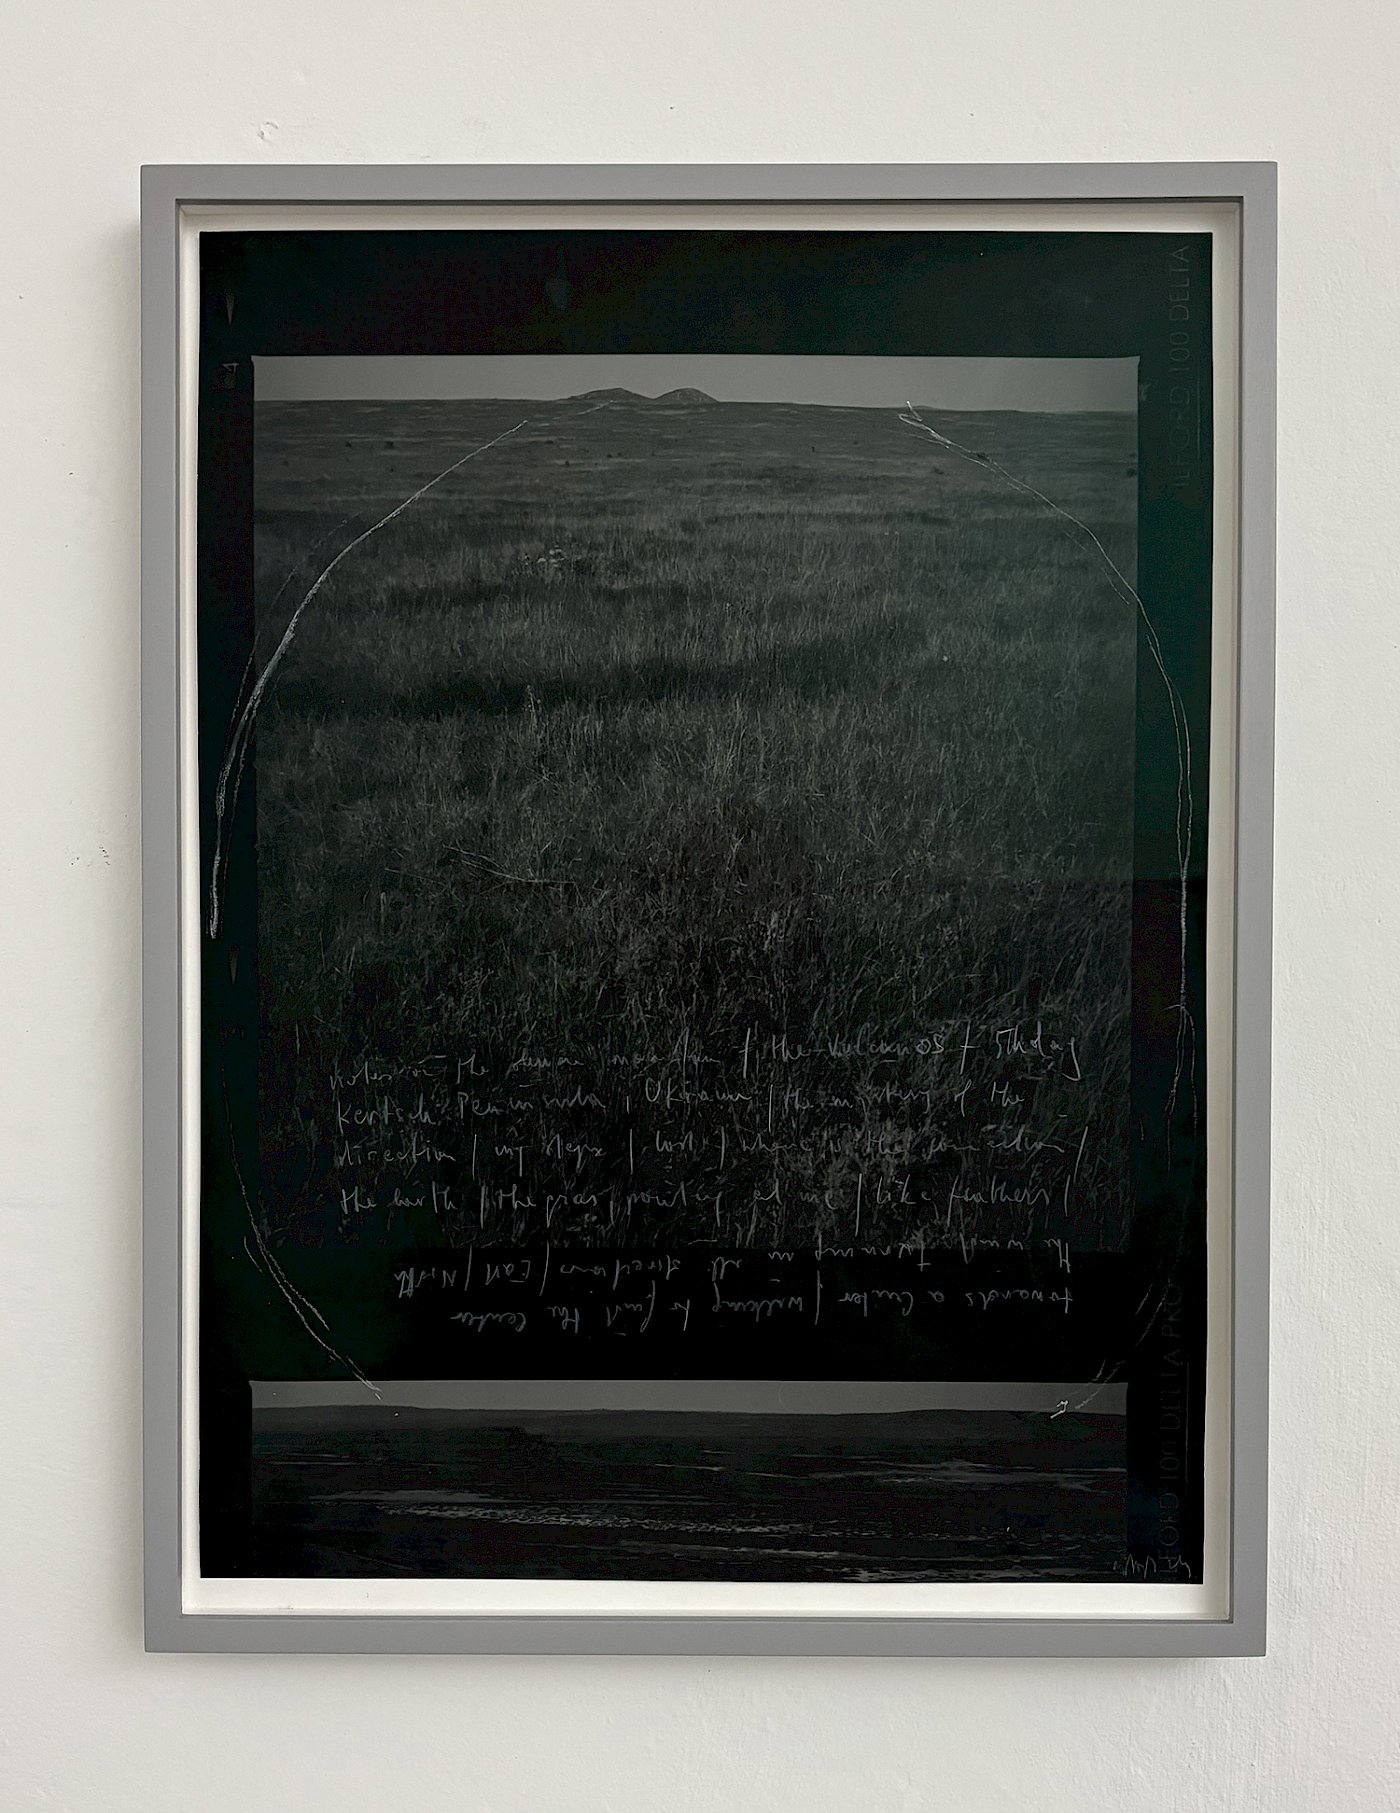 ILFORD 100 DELTA
4
Notes on the / the vulcanos / 5th day
Kertsch Peninsula, Ukraine / the mystery of the
direction / my steps / lost / where is the connection /
the earth / the gras pointing at me / like feathers /
the wind turning in all directions / East / North
towards a Center / walking to find the Center
ILFORD 100 DELTA PRO